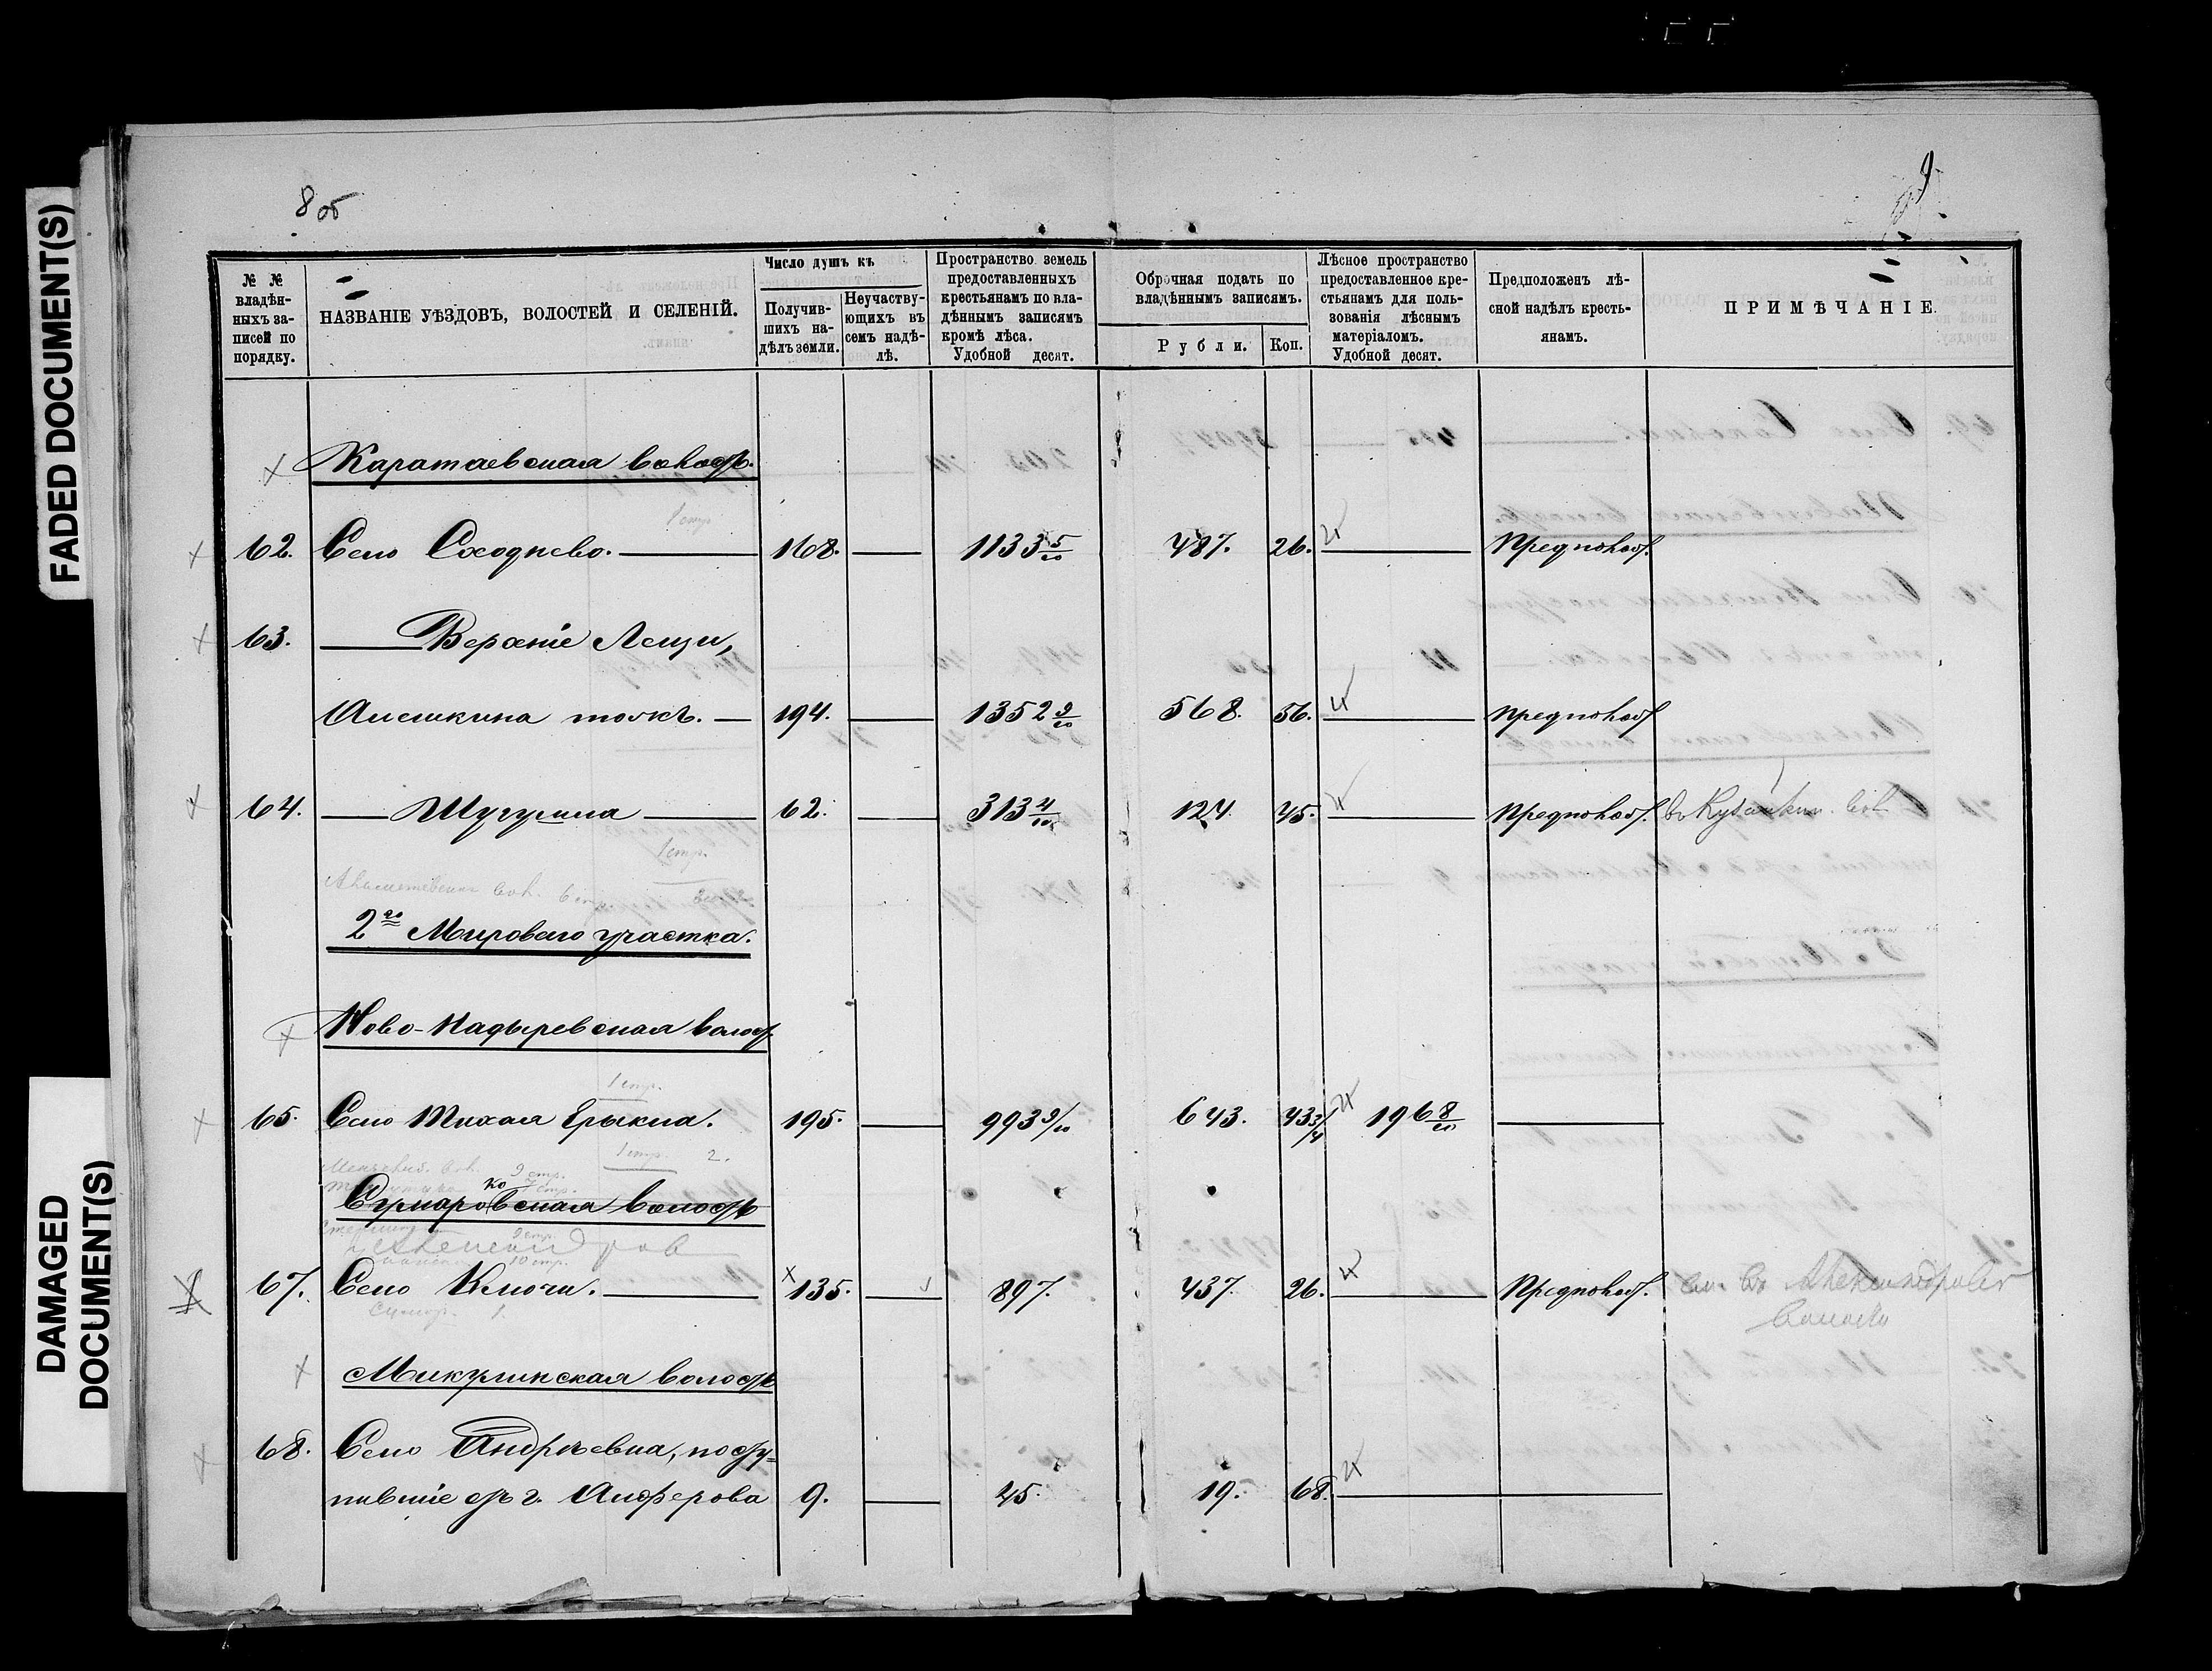 FADED DOCUMENT(S)
DAMAGED
DOCUMENT(S)
8 об
9
№ №
владѣн-
ныхъ за-
писей по
порядку.
НАЗВАНІЕ УѢЗДОВЪ, ВОЛОСТЕЙ И СЕЛЕНІЙ.
Число душъ къ
Получив-
шихъ на-
дѣлъ земли.
Неучаству-
ющихъ въ
семъ надѣ-
лѣ.
Пространство земель
предоставленныхъ
крестьянамъ по вла-
дѣннымъ записямъ
кромѣ лѣса.
Удобной десят.
Оброчная подать по
владѣннымъ записямъ.
Рубли. Коп.
Лѣсное пространство
предоставленное кре-
стьянамъ для поль-
зованія лѣснымъ
матеріаломъ.
Удобной десят.
Предположенъ лѣ-
сной надѣлъ кресть-
янамъ.
ПРИМѢЧАНІЕ.
Каратаевская волость.
1 стр.
62. Село Сходнево. 168. 1133 5/10 487. 26. Предполож.
63. Верхніе Лещи,
Алешкина тожъ. 194. 1352 9/10 568. 56. предполож.
64. Шугурина 62. 313 4/10 124. 45. предполож. Въ Кубанкин. вол.
1 стр.
2го Мироваго участка.
Ново-Кадыревская волост.
1 стр.
65. Село Тихая Ерыкла. 195. 993 9/10 643. 43 3/4 196 8/10
1 стр. 2.
9 стр.
ко
Сумаровская волость
9 стр.
10 стр.
67. Село Ключи. 135. 897. 437. 26. Предполож. см. въ Александровск
волости
1.
Микулинская волость
68. Село Андреевка, посту=
пившіе отъ г. Алферова 9. 45. 19. 68.